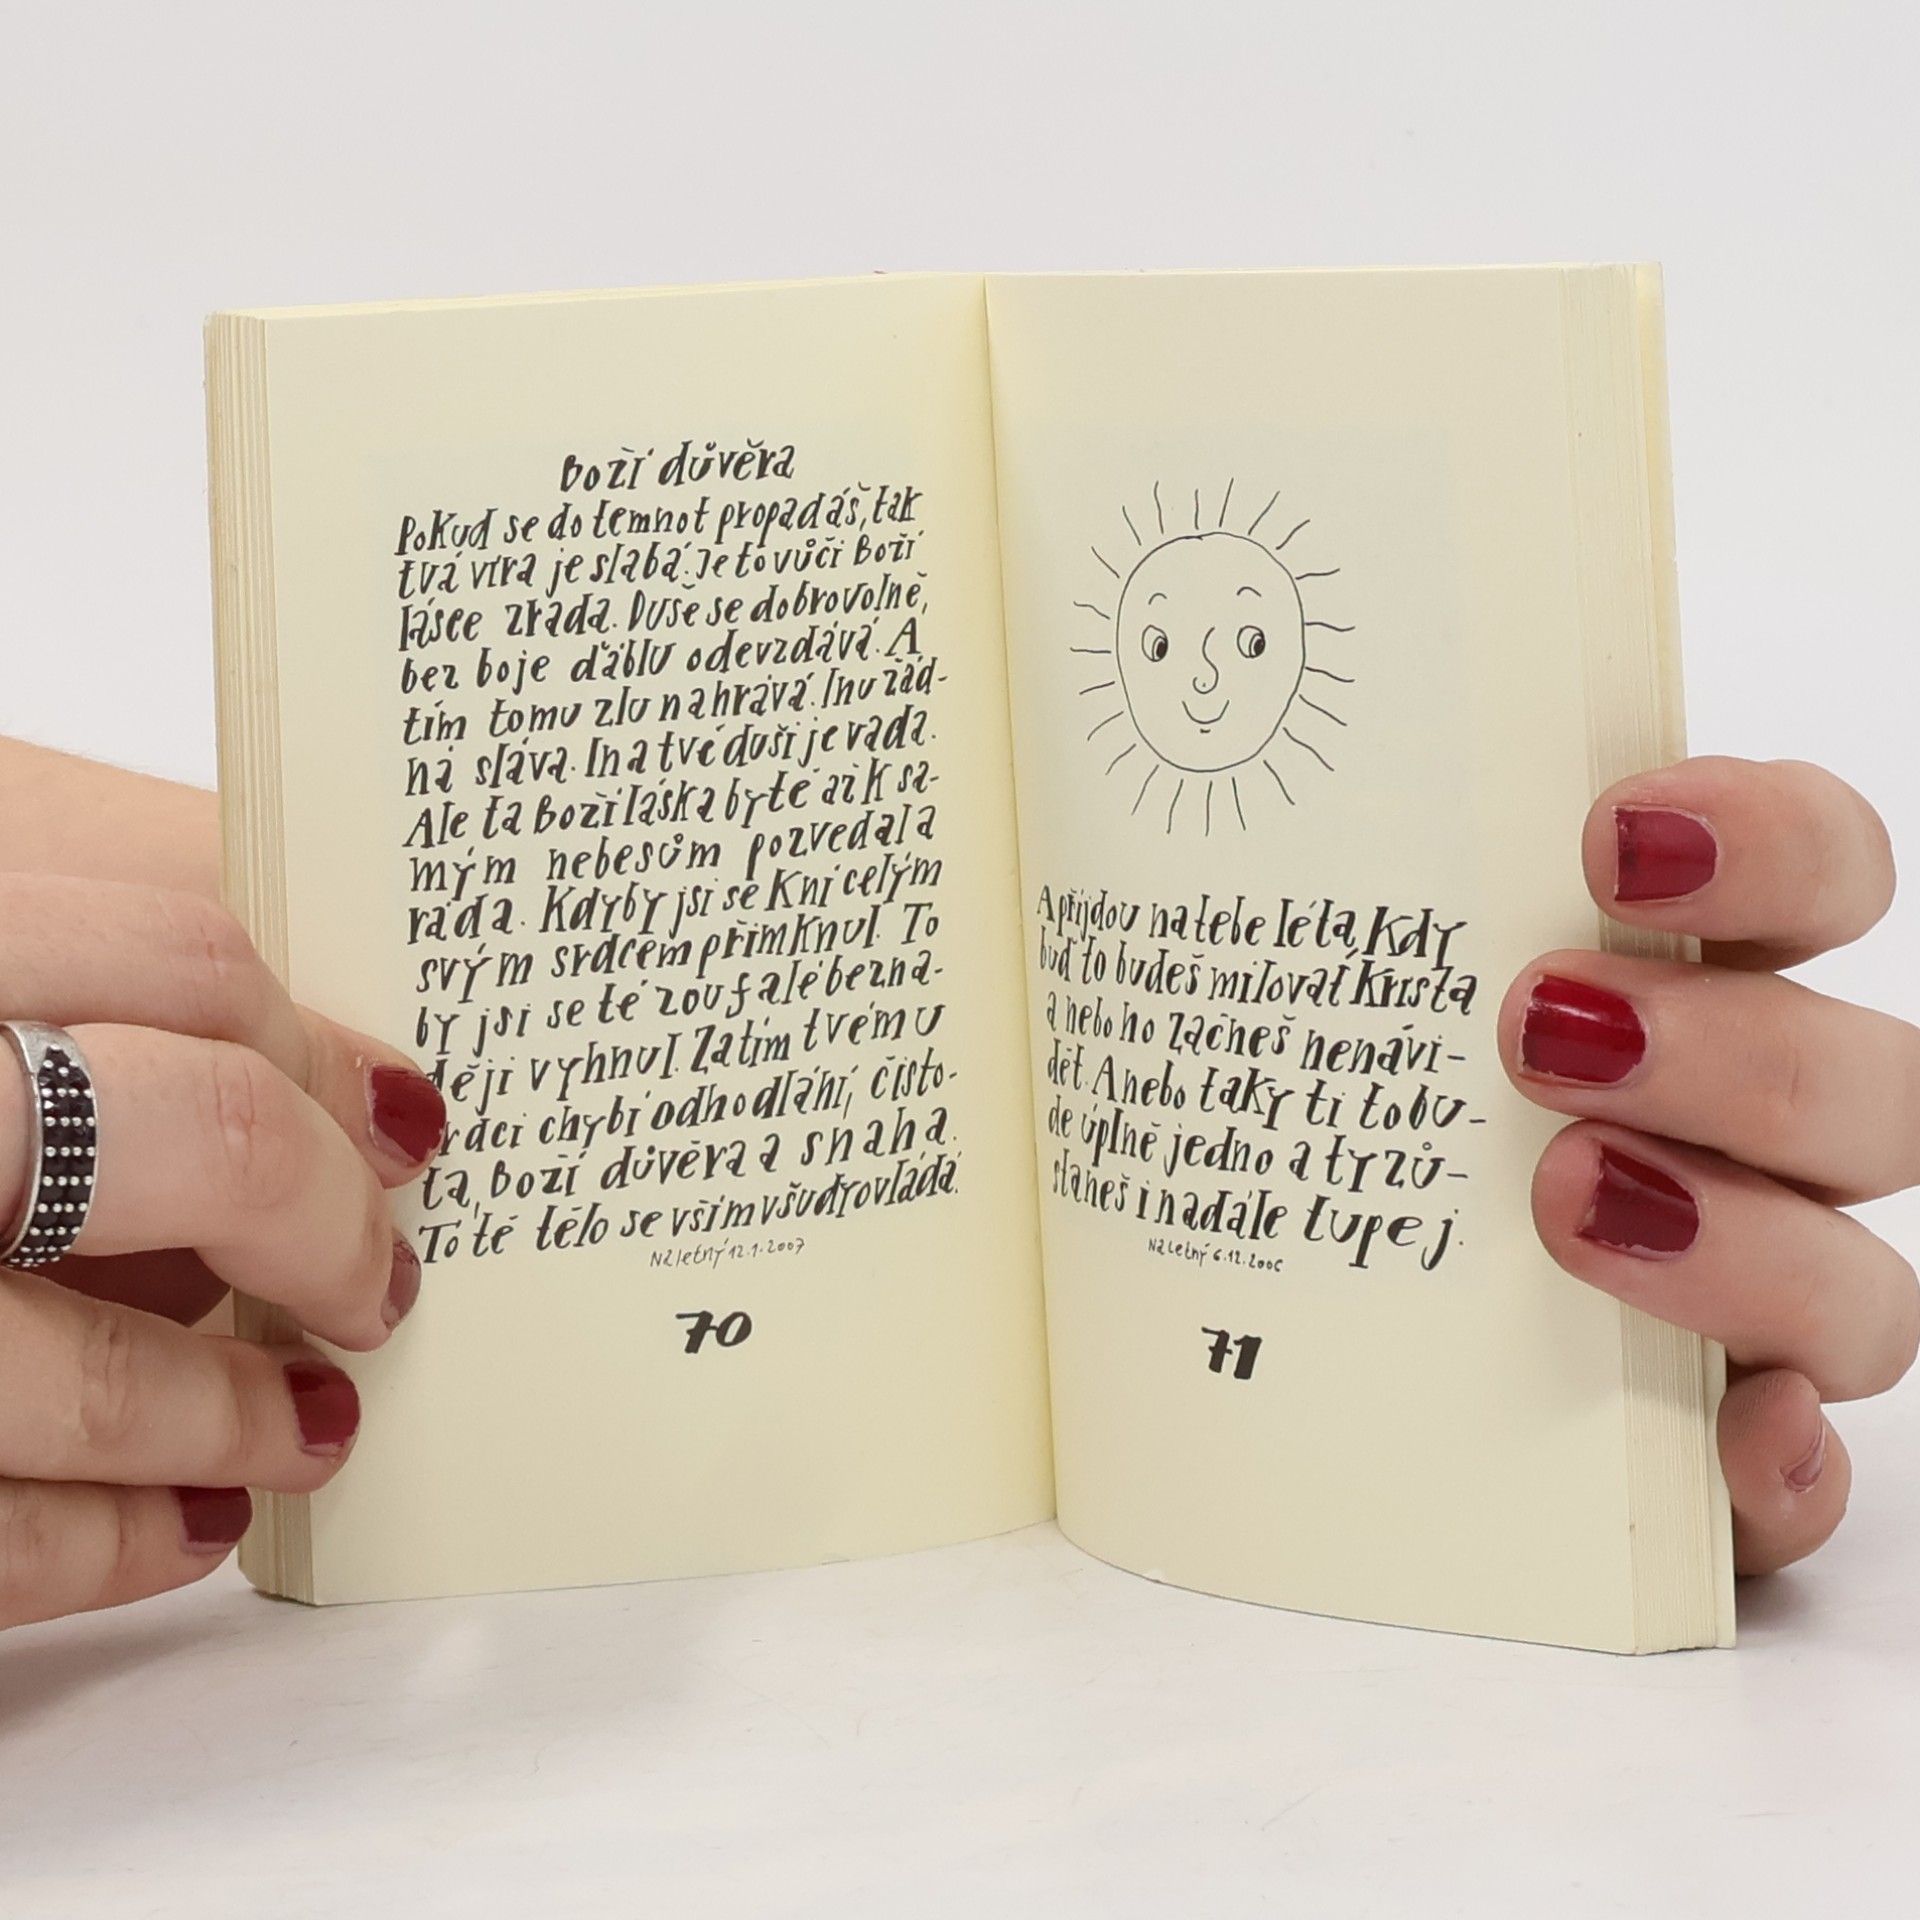 Boží důvěra
Pokud se do temnot propadáš, tak
tvá víra je slabá. Je to vůči Boží
lásce zrada. Duše se dobrovolně,
bez boje ďáblu odevzdává. A
tím tomu zlu nahrává. Inu žád-
ná sláva. I na tvé duši je vada.
Ale ta Boží láska by tě až k sa-
mým nebesům pozvedala
ráda. Kdyby jsi se k ní celým
svým srdcem přimknul. To
by jsi se té zoufalé bezna-
ději vyhnul. Zatím tvému
srdci chybí odhodlání, čisto-
ta, Boží důvěra a snaha.
To tě tělo se vším všudy ovládá.
Na letný 12.1.2007
70
A příjdou na tebe léta, kdy
buď to budeš milovat Krista
a nebo ho začneš nenávi-
dět. A nebo taky ti to bu-
de úplně jedno a ty zů-
staneš i nadále tupej.
Na letný 6.12.2006
71